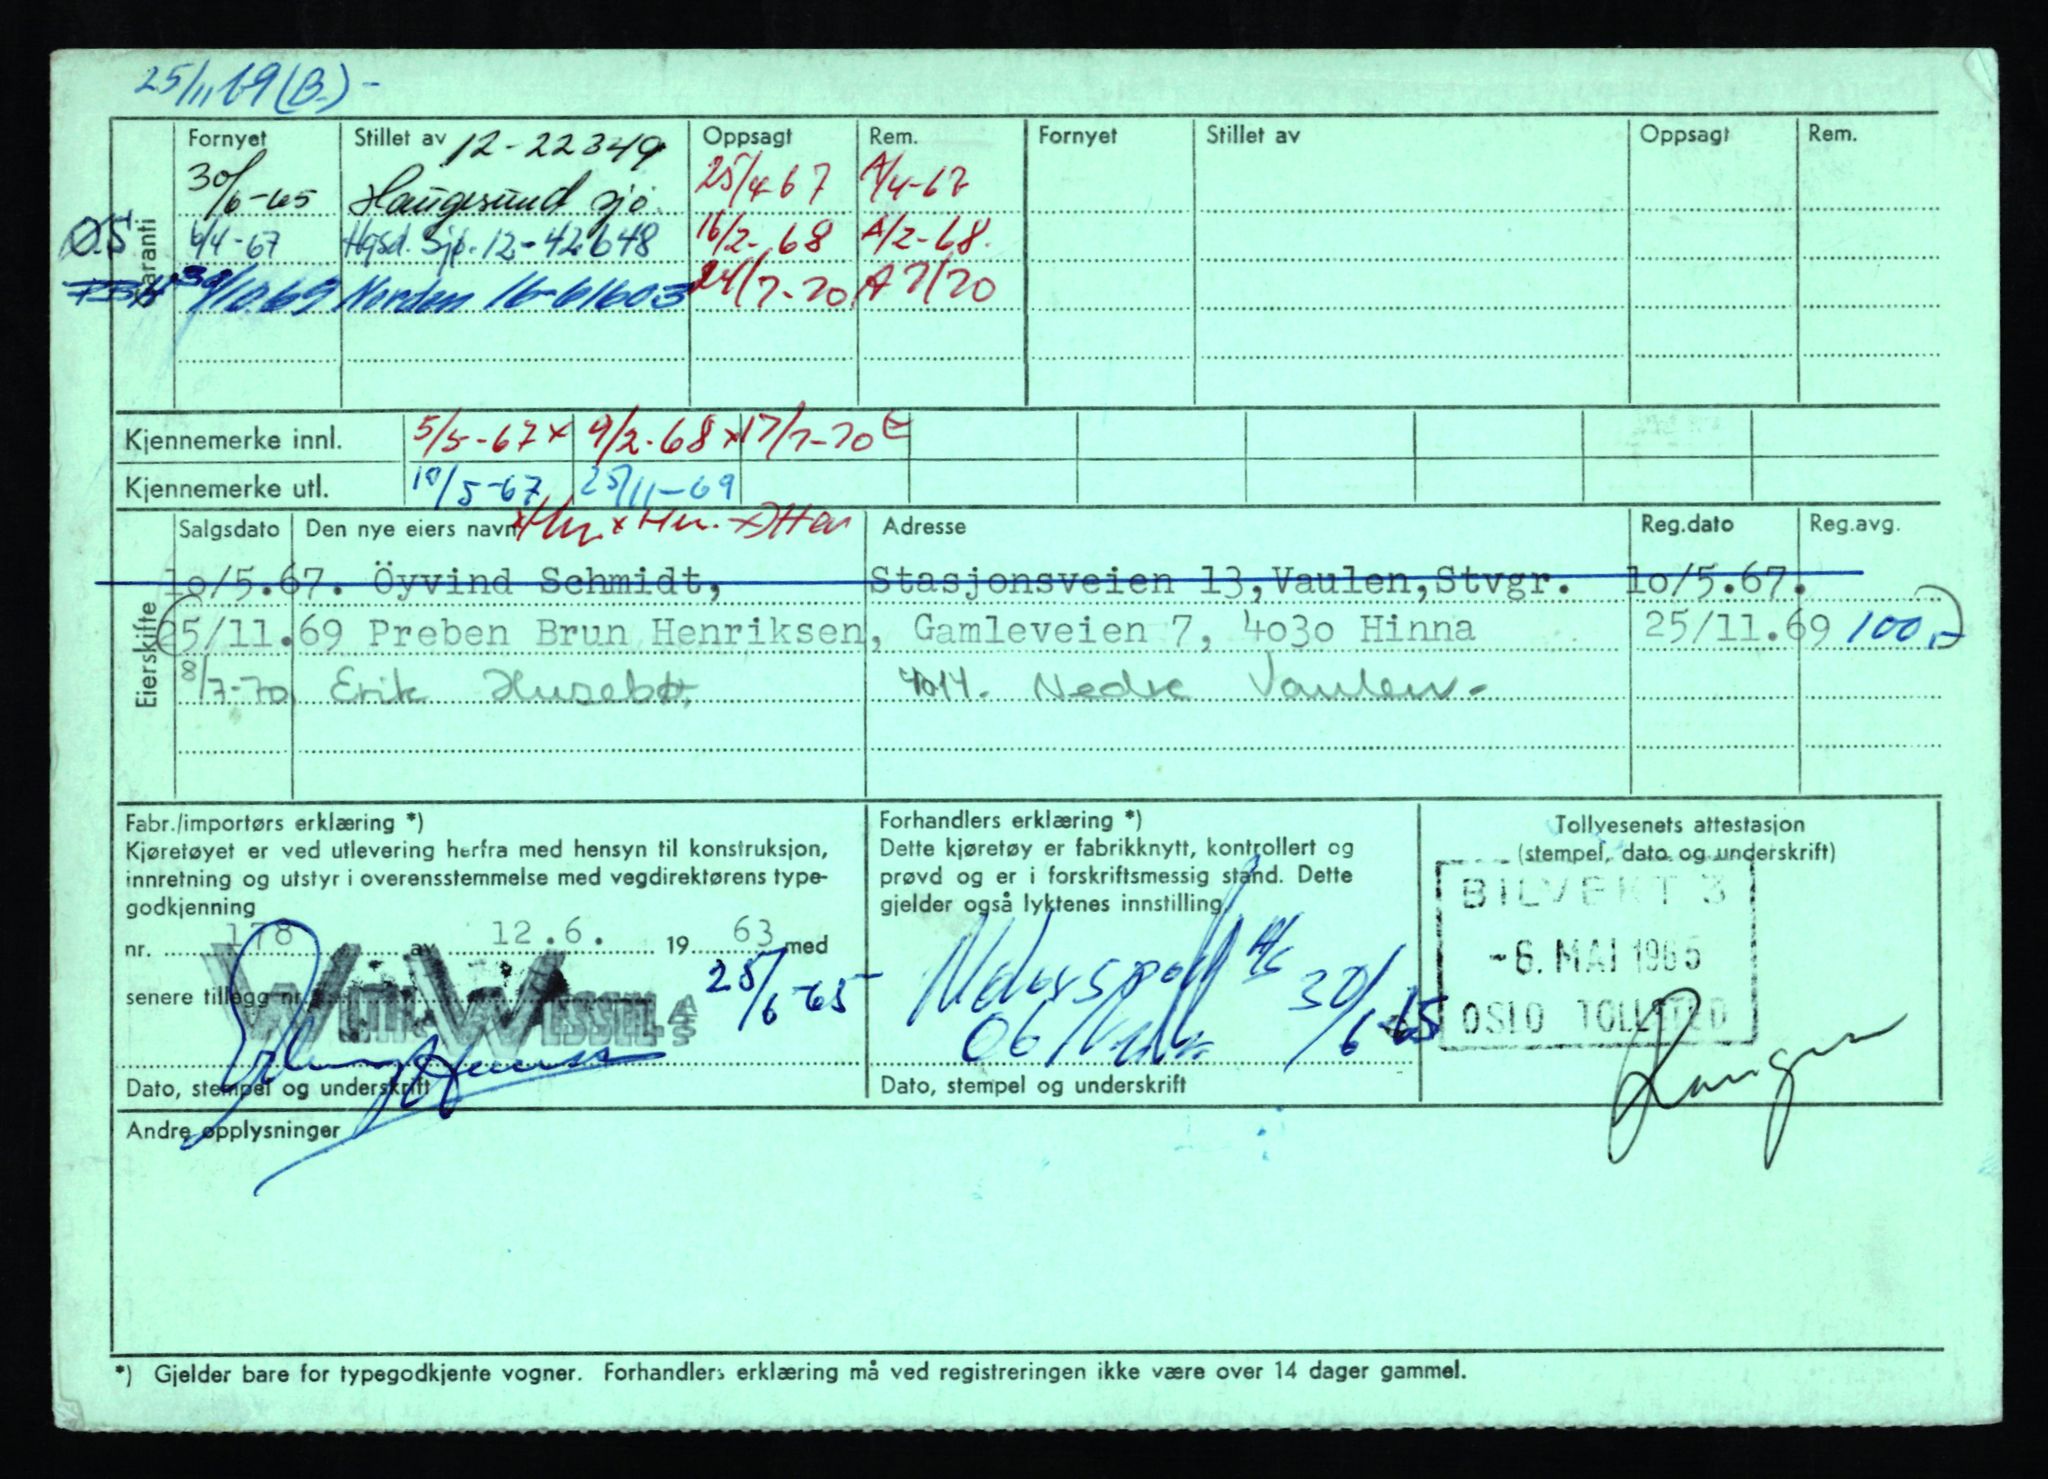 25/11 69 (B.) -
Fornyet Stillet av 12-22349 Oppsagt Rem. Fornyet Stillet av Oppsagt Rem.
30/6-65 Haugesund Sjø. 25/4-67 A/4-67
Garanti
Ø.S 6/4-67 Hgsd. Sjø. 12-42648 16/2-68 A/2-68.
30/10.69 Norden 16-61603 24/7-70 A 7/70
Kjennemerke innl. 5/5-67 x 9/2-68 x 17/7-70
Kjennemerke utl. 10/5-67 25/11-69
Salgsdato Den nye eiers navn Adresse Reg.dato Reg.avg.
Eierskifte
10/5.67. Öyvind Schmidt, Stasjonsveien 13,Vaulen,Stvgr. 10/5.67.
25/11.69 Preben Brun Henriksen, Gamleveien 7, 4030 Hinna 25/11.69 100,-
8/7-70 Erik Husebø, 4014. Nedre Vaulen.
Fabr./importørs erklæring *)
Kjøretøyet er ved utlevering herfra med hensyn til konstruksjon,
innretning og utstyr i overensstemmelse med vegdirektørens type-
godkjenning
nr. 178 av 12.6. 19 63 med
senere tillegg nr.
25/6-65
Dato, stempel og underskrift
Forhandlers erklæring *)
Dette kjøretøy er fabrikknytt, kontrollert og
prøvd og er i forskriftsmessig stand. Dette
gjelder også lyktenes innstilling.
A/S 30/6-65
Dato, stempel og underskrift
Tollvesenets attestasjon
(stempel, dato og underskrift)
BILVEKT 3
-6. MAI 1965
OSLO TOLLSTED
Andre opplysninger
*) Gjelder bare for typegodkjente vogner. Forhandlers erklæring må ved registreringen ikke være over 14 dager gammel.